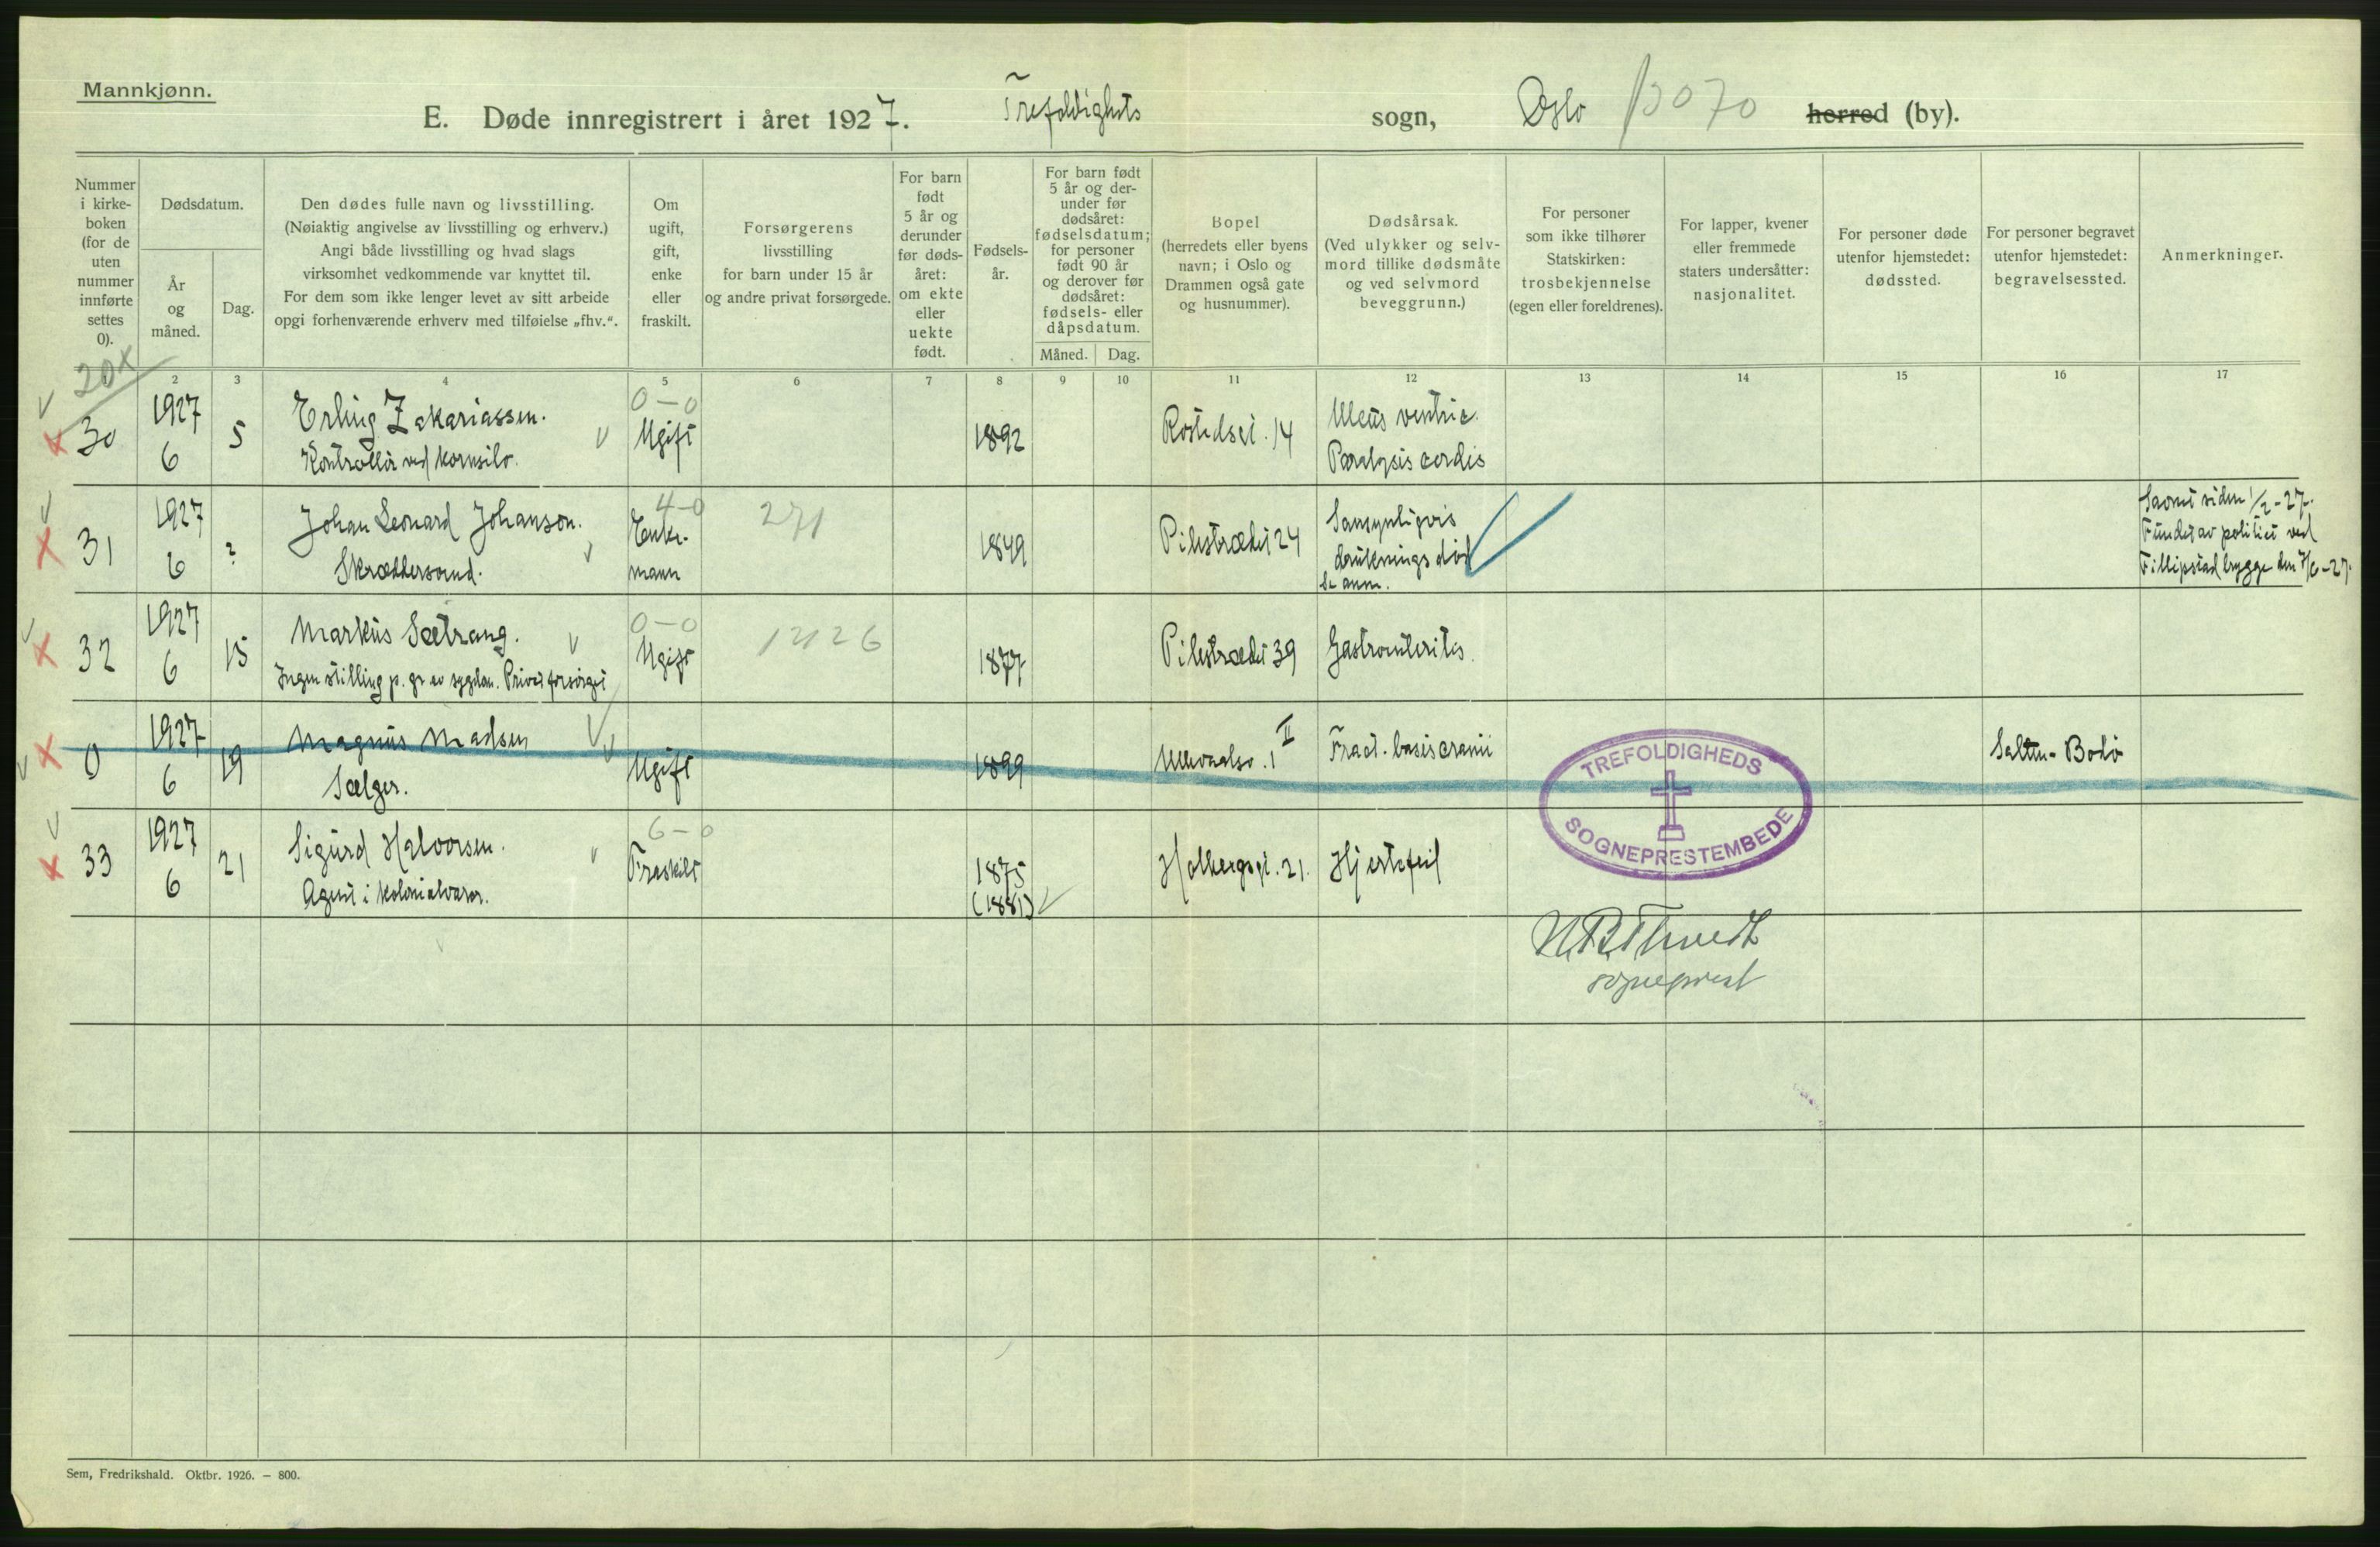 Mannkjønn.
E. Døde innregistrert i året 1927. Trefoldighets sogn, Oslo 13070 herred (by).
Nummer i kirke- boken (for de uten nummer innførte settes 0).
Dødsdatum.
År og måned.
Dag.
Den dødes fulle navn og livsstilling.
(Nøiaktig angivelse av livsstilling og erhverv.)
Angi både livsstilling og hvad slags
virksomhet vedkommende var knyttet til.
For dem som ikke lenger levet av sitt arbeide
opgi forhenværende erhverv med tilføielse „fhv.“.
Om ugift, gift, enke eller fraskilt.
Forsørgerens
livsstilling
for barn under 15 år
og andre privat forsørgede.
For barn født 5 år og derunder før døds- året: om ekte eller uekte født.
Fødsels- år.
For barn født 5 år og der- under før dødsåret: fødselsdatum; for personer født 90 år og derover før dødsåret: fødsels- eller dåpsdatum.
Måned. Dag.
Bopel
(herredets eller byens
navn; i Oslo og
Drammen også gate
og husnummer).
Dødsårsak.
(Ved ulykker og selv-
mord tillike dødsmåte
og ved selvmord
beveggrunn.)
For personer
som ikke tilhører
Statskirken:
trosbekjennelse
(egen eller foreldrenes).
For lapper, kvener
eller fremmede
staters undersåtter:
nasjonalitet.
For personer døde
utenfor hjemstedet:
dødssted.
For personer begravet
utenfor hjemstedet:
begravelsessted.
Anmerkninger.
20x
2 3 4 5 6 7 8 9 10 11 12 13 14 15 16 17
30 1927 6 5 Erling Zakariassen.
Kontrollør ved kornsilo.
0-0
Ugift 1892 14 Ulcus ventric.
Paralysis cordis
31 1927 6 ? Johan Leonard Johanson.
Skræddersvend.
4-0
Enke-
mann
271
1849 Pilestrædet 24 Sansynligvis
drukningsdød
Se anm.
Savnet siden 1/2-27.
Fundet av politiet ved
Fillipstad brygge den 7/6-27.
32 1927 6 15 Markus Sætrang.
Ingen stilling p. gr av sygdom. Privat forsørget
0-0
Ugift
1877 Pilestrædet 39 Gastroenterites.
0 1927 6 19 Magnus Madsen
Sælger.
Ugift 1899 Ullevaalsv. 1 II Fract. basis cranii Salten-Bodø
TREFOLDIGHEDS
SOGNEPRESTEMBEDE
33 1927 6 21 Sigurd Halvorsen.
Agent i kolonialvarer.
6-0
Fraskilt 1875
(1881)
Holbergsgt. 21. Hjertefeil
sogneprest
Sem, Fredrikshald. Oktbr. 1926. — 800.